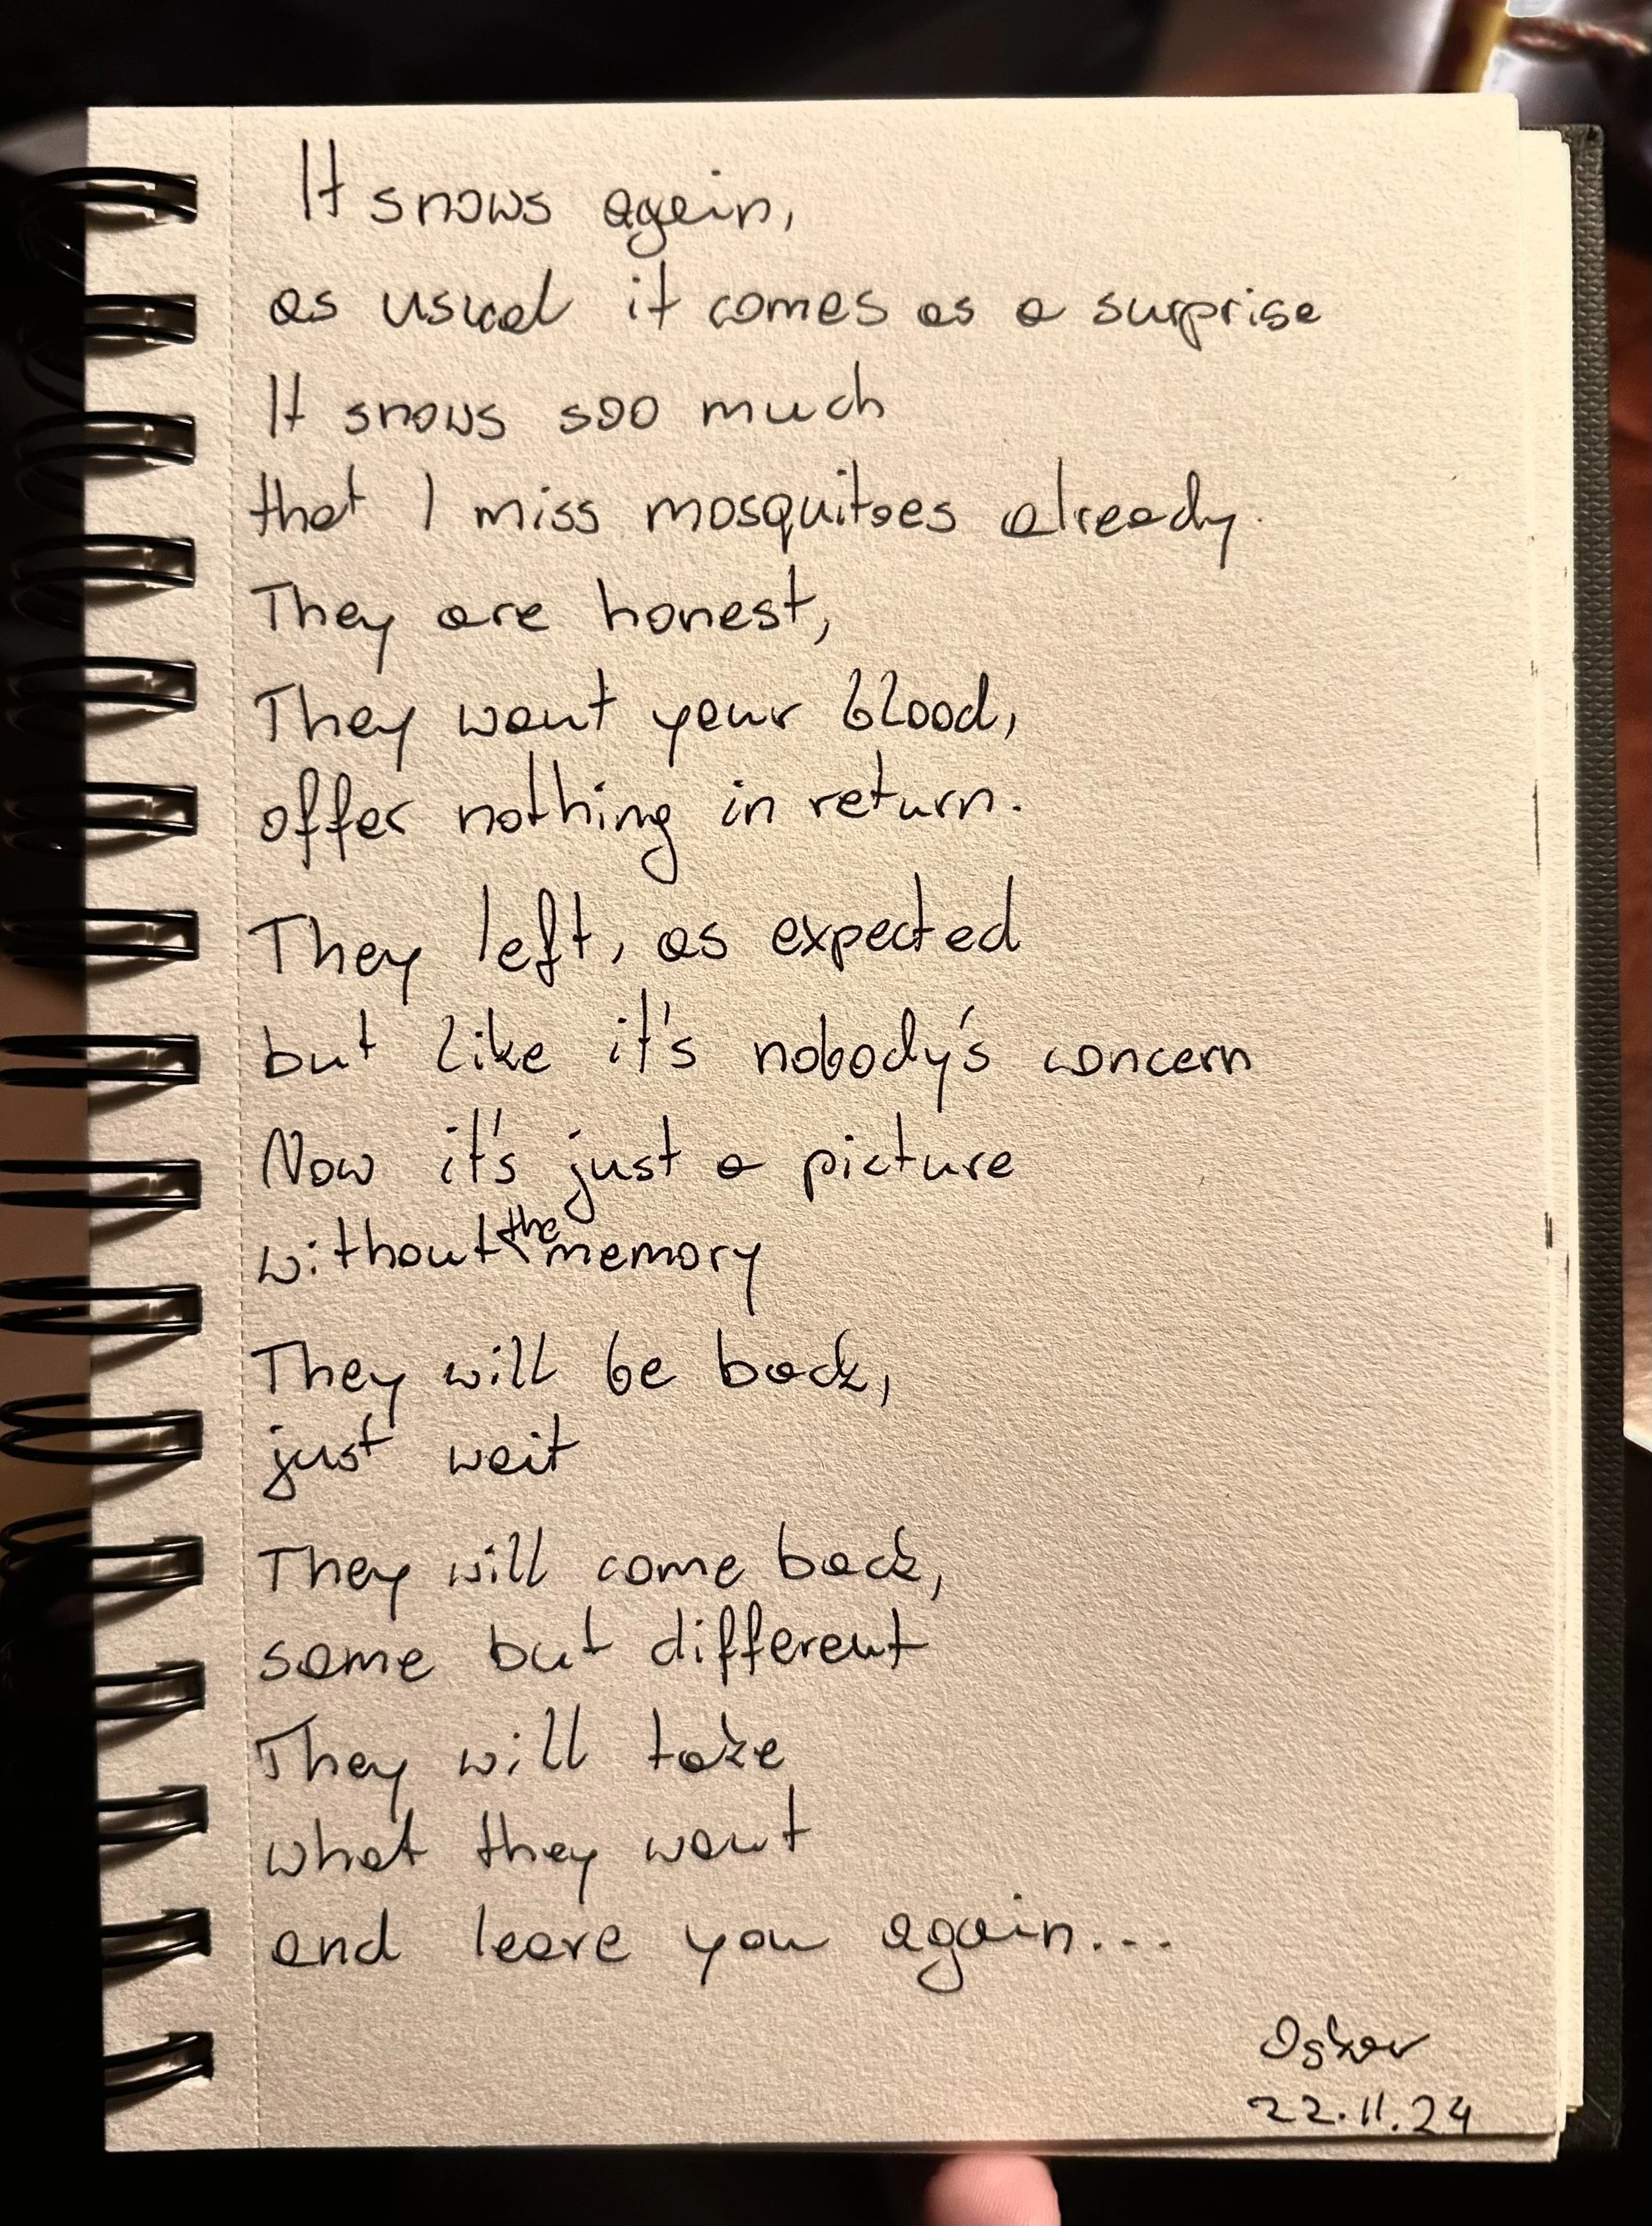 It snows again,
as usual it comes as a surprise
It snows soo much
that I miss mosquitoes already.
They are honest,
They want your blood,
offer nothing in return.
They left, as expected
but like it's nobody's concern
Now it's just a picture
without the memory
They will be back,
just wait
They will come back,
same but different
They will take
what they want
and leave you again...
Oskar
22.11.24